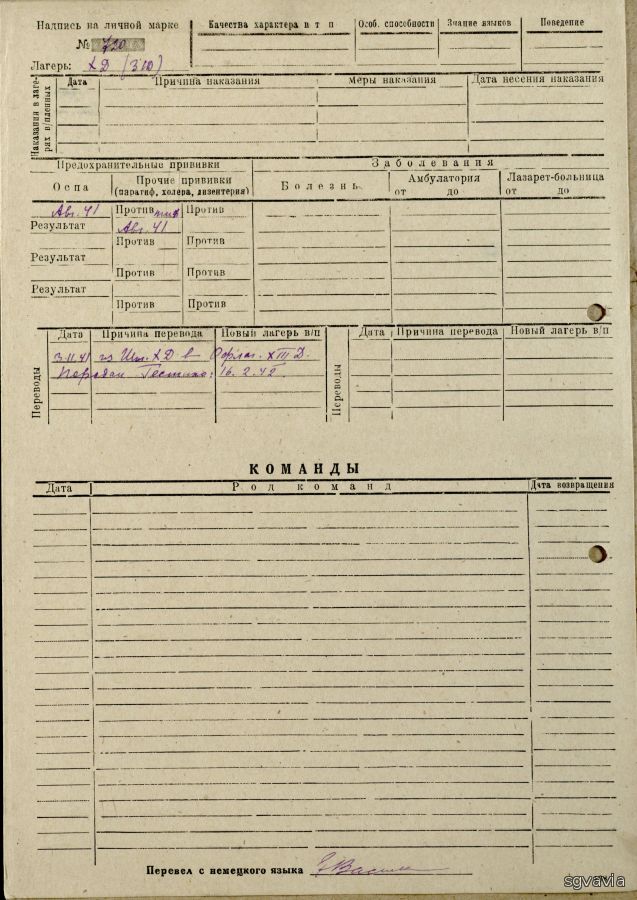 Надпись на личной марке
№ 720
Лагерь: XД (310)
Качества характера и т п
Особ. способности
Знание языков
Поведение
Наказания в лаге-
рях в/пленных
Дата
Причина наказания
Меры наказания
Дата несения наказания
Предохранительные прививки
Заболевания
Оспа
Прочие прививки
(паратиф, холера, дизентерия)
Болезнь
Амбулатория
от до
Лазарет-больница
от до
Авг. 41
Против тиф
Против
Результат
Авг. 41
Против
Против
Результат
Против
Против
Результат
Против
Против
Переводы
Дата
Причина перевода
Новый лагерь в/п
3.11.41 из Шт. XД в Офлаг. XIII Д.
Передан Гестапо: 16.2.42.
Переводы
Дата
Причина перевода
Новый лагерь в/п
КОМАНДЫ
Дата
Род команд
Дата возвращения
Перевел с немецкого языка
sgvavia